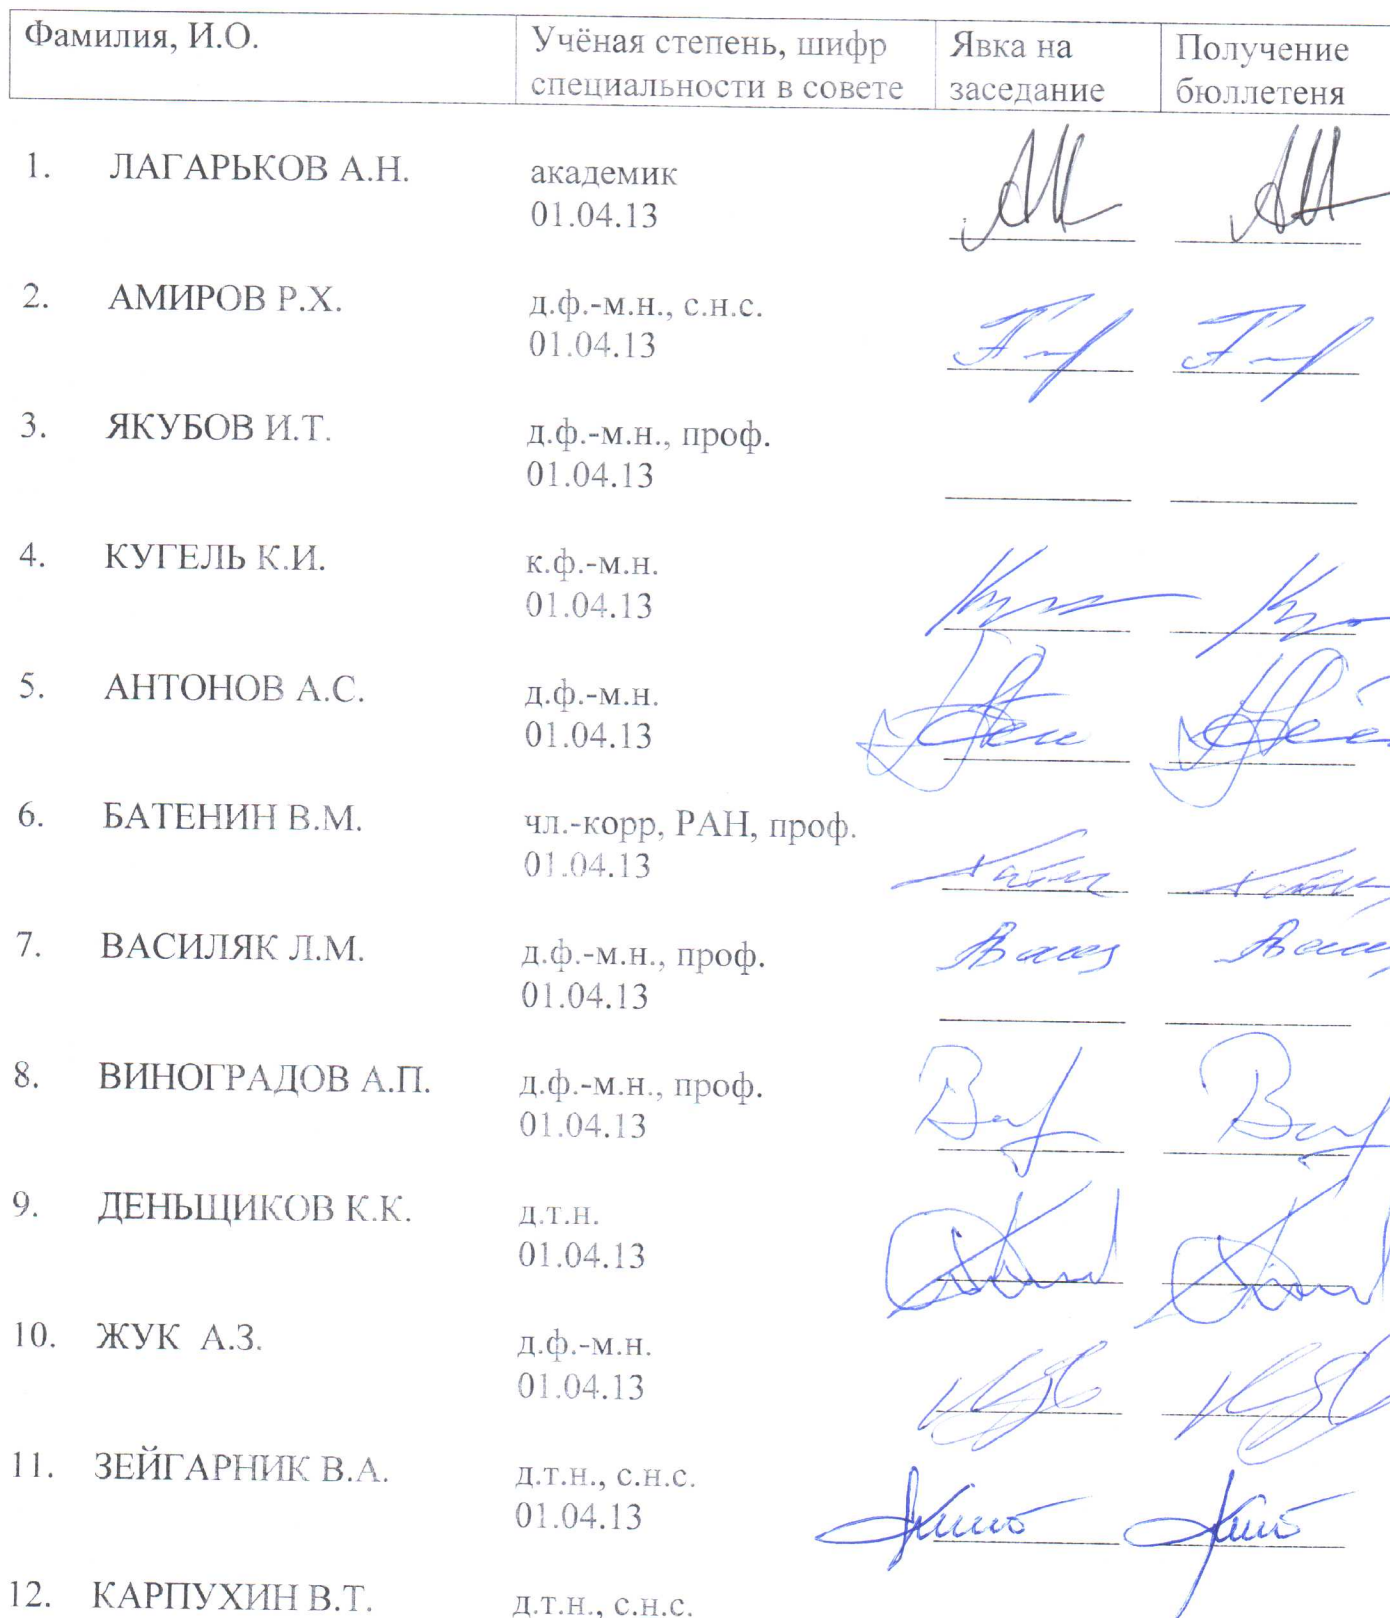 Фамилия, И.О.
Учёная степень, шифр
специальности в совете
Явка на
заседание
Получение
бюллетеня
1. ЛАГАРЬКОВ А.Н. академик
01.04.13
2. АМИРОВ Р.Х. д.ф.-м.н., с.н.с.
01.04.13
3. ЯКУБОВ И.Т. д.ф.-м.н., проф.
01.04.13
4. КУГЕЛЬ К.И. к.ф.-м.н.
01.04.13
5. АНТОНОВ А.С. д.ф.-м.н.
01.04.13
6. БАТЕНИН В.М. чл.-корр, РАН, проф.
01.04.13
7. ВАСИЛЯК Л.М. д.ф.-м.н., проф.
01.04.13
8. ВИНОГРАДОВ А.П. д.ф.-м.н., проф.
01.04.13
9. ДЕНЬЩИКОВ К.К. д.т.н.
01.04.13
10. ЖУК А.З. д.ф.-м.н.
01.04.13
11. ЗЕЙГАРНИК В.А. д.т.н., с.н.с.
01.04.13
12. КАРПУХИН В.Т. д.т.н., с.н.с.